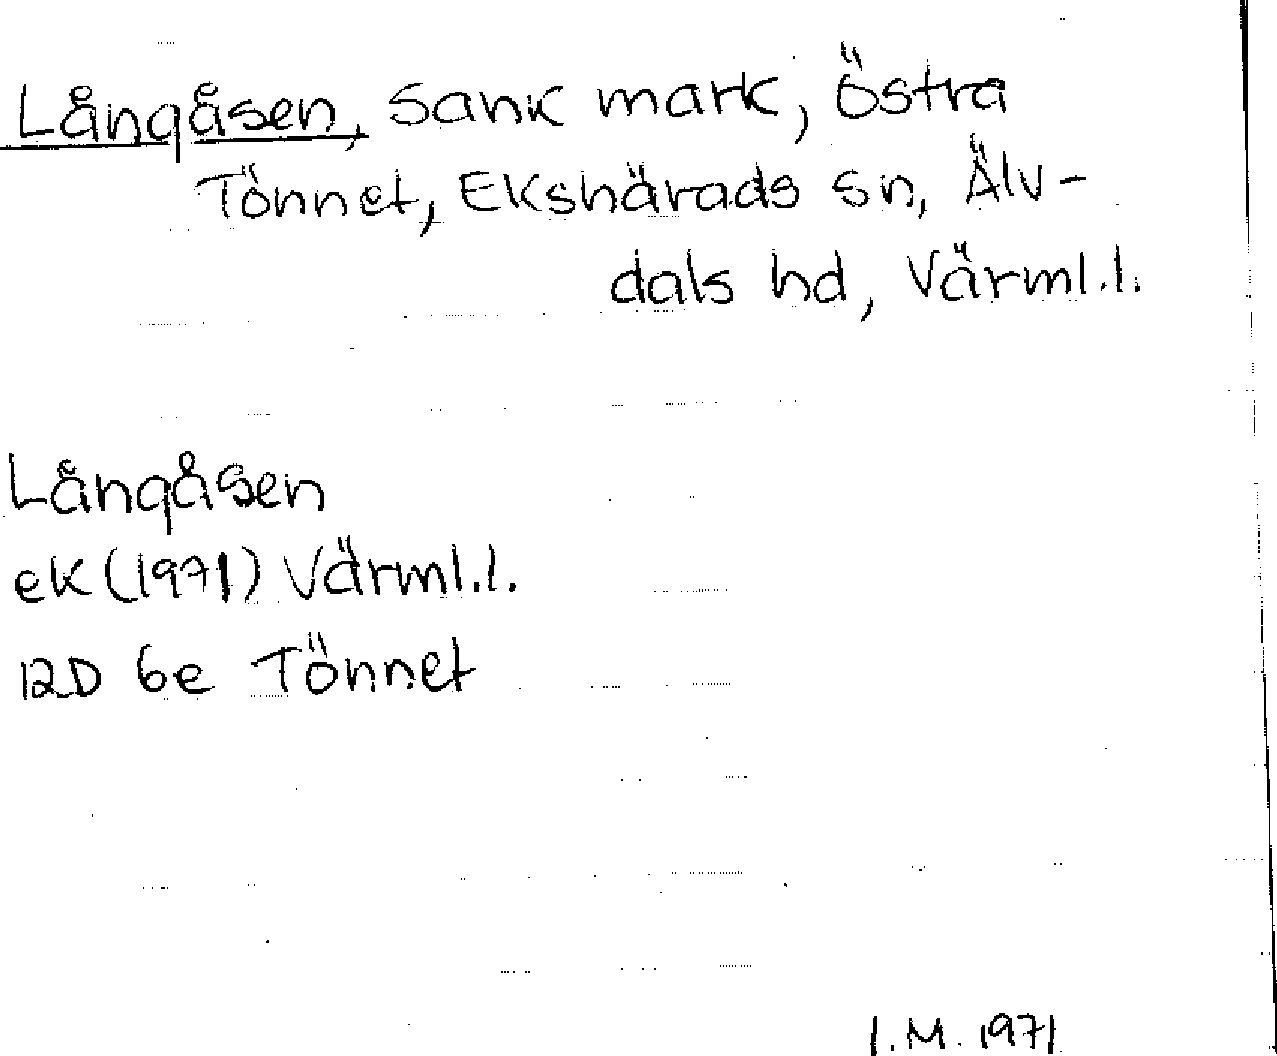 Långåsen, sank mark, Östra
Tönnet, Ekshärads sn, Älv-
dals hd, Värml.l.
Långåsen
ek (1971) Värml.l.
12D 6e Tönnet
I.M. 1971